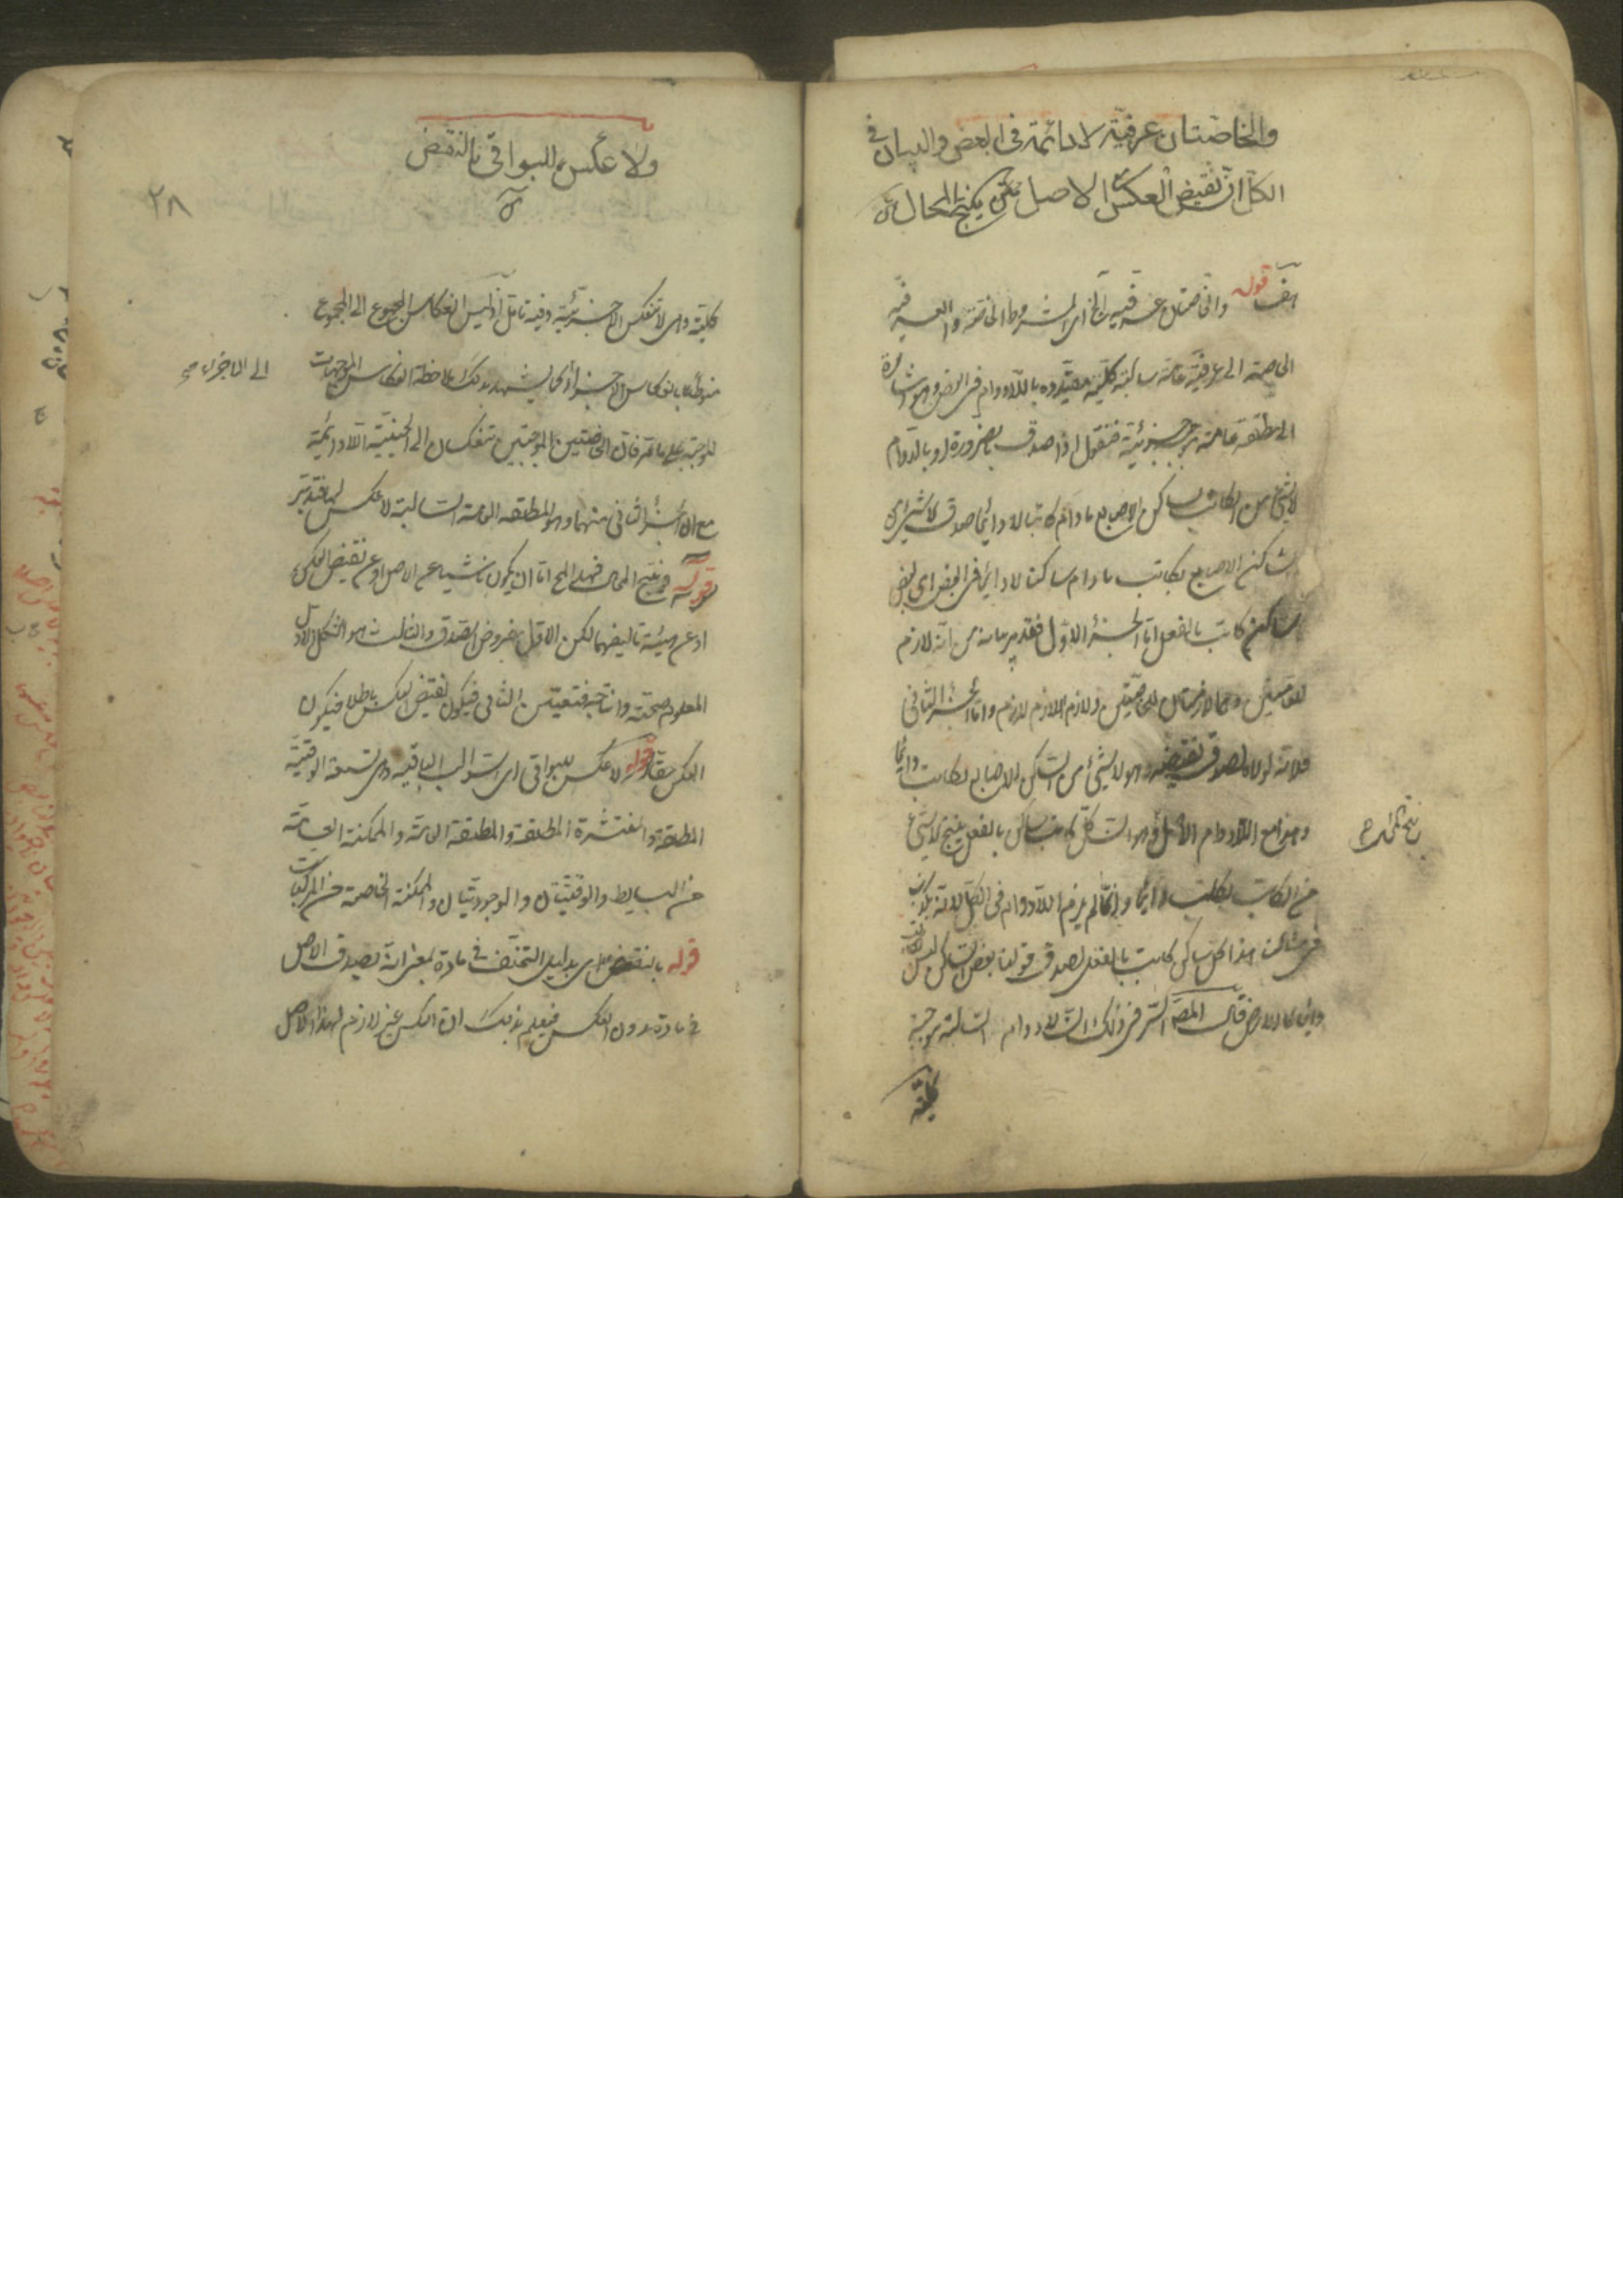 والخاصتان عرفية لا دائمة في البعض والبيان في
الكل ان نقيض العكس مع الاصل ينتج المحال
هف قوله والخاصتان عرفية الخ اى المشروطة الخاصة والعرفية
الخاصة الى عرفية عامة سالبة كلية مقيدة باللادوام فى البعض وهو اشارة
الى مطلقة عامة موجبة جزئية فنقول اذا صدق بالضرورة او بالدوام
لا شئ من الكاتب بساكن الاصابع ما دام كاتبا لا دائما صدق لا شئ من
الساكن الاصابع بكاتب ما دام ساكنا لا دائما فى البعض اى بعض
الساكن كاتب بالفعل اما الجزء الاول فقد مر بيانه من انه لازم
للعامتين وهما لازمتان للخاصتين ولازم اللازم لازم واما الجزء الثانى
فلانه لولاه لصدق نقيضه وهو لا شئ من الساكن الاصابع بكاتب دائما
وهو مع اللادوام الاصل وهو ان كل كاتب ساكن بالفعل ينتج لا شئ
من الكاتب بكاتب دائما وانما لم يلزم اللادوام فى الكل لانه يكذب
فى مثالنا هذا كل ساكن كاتب بالفعل لصدق قولنا بعض الساكن ليس بكاتب
دائما كالارض قال المص السر فى ذلك ان لا دوام السالبة موجبة
كلية
ولا عكس للبواقى بالنقض
٢٨
كلية وهى لا تنعكس الا جزئية وفيه تامل اذ ليس انعكاس المجموع الى المجموع
منوطا بانعكاس الاجزاء كما يشهد بذلك ملاحظة انعكاس الموجهات
الى الاجزاء صح
الموجبة على ما مر فان الخاصتين الموجبتين تنعكسان الى الحينية اللادائمة
مع ان الجزء الثانى منهما وهو المطلقة العامة السالبة لا عكس لها فتدبر
قوله ينتج المحال فهذا المح اما ان يكون ناشيا عن الاصل او عن نقيض العكس
او عن هيئة تاليفهما لكن الاول مفروض الصدق والثالث هو الشكل الاول
المعلوم صحته وانتاجه فتعين الثانى فيكون نقيض العكس باطلا فيكون
العكس حقا قوله لا عكس للبواقى اى السوالب الباقية وهى تسعة الوقتية
المطلقة والمنتشرة المطلقة والمطلقة العامة والممكنة العامة
من البسايط والوقتيتان والوجوديتان والممكنة الخاصة من المركبات
قوله بالنقض اى بدليل التخلف فى مادة بمعنى انه يصدق الاصل
فى مادة بدون العكس فيعلم بذلك ان العكس غير لازم لهذا الاصل